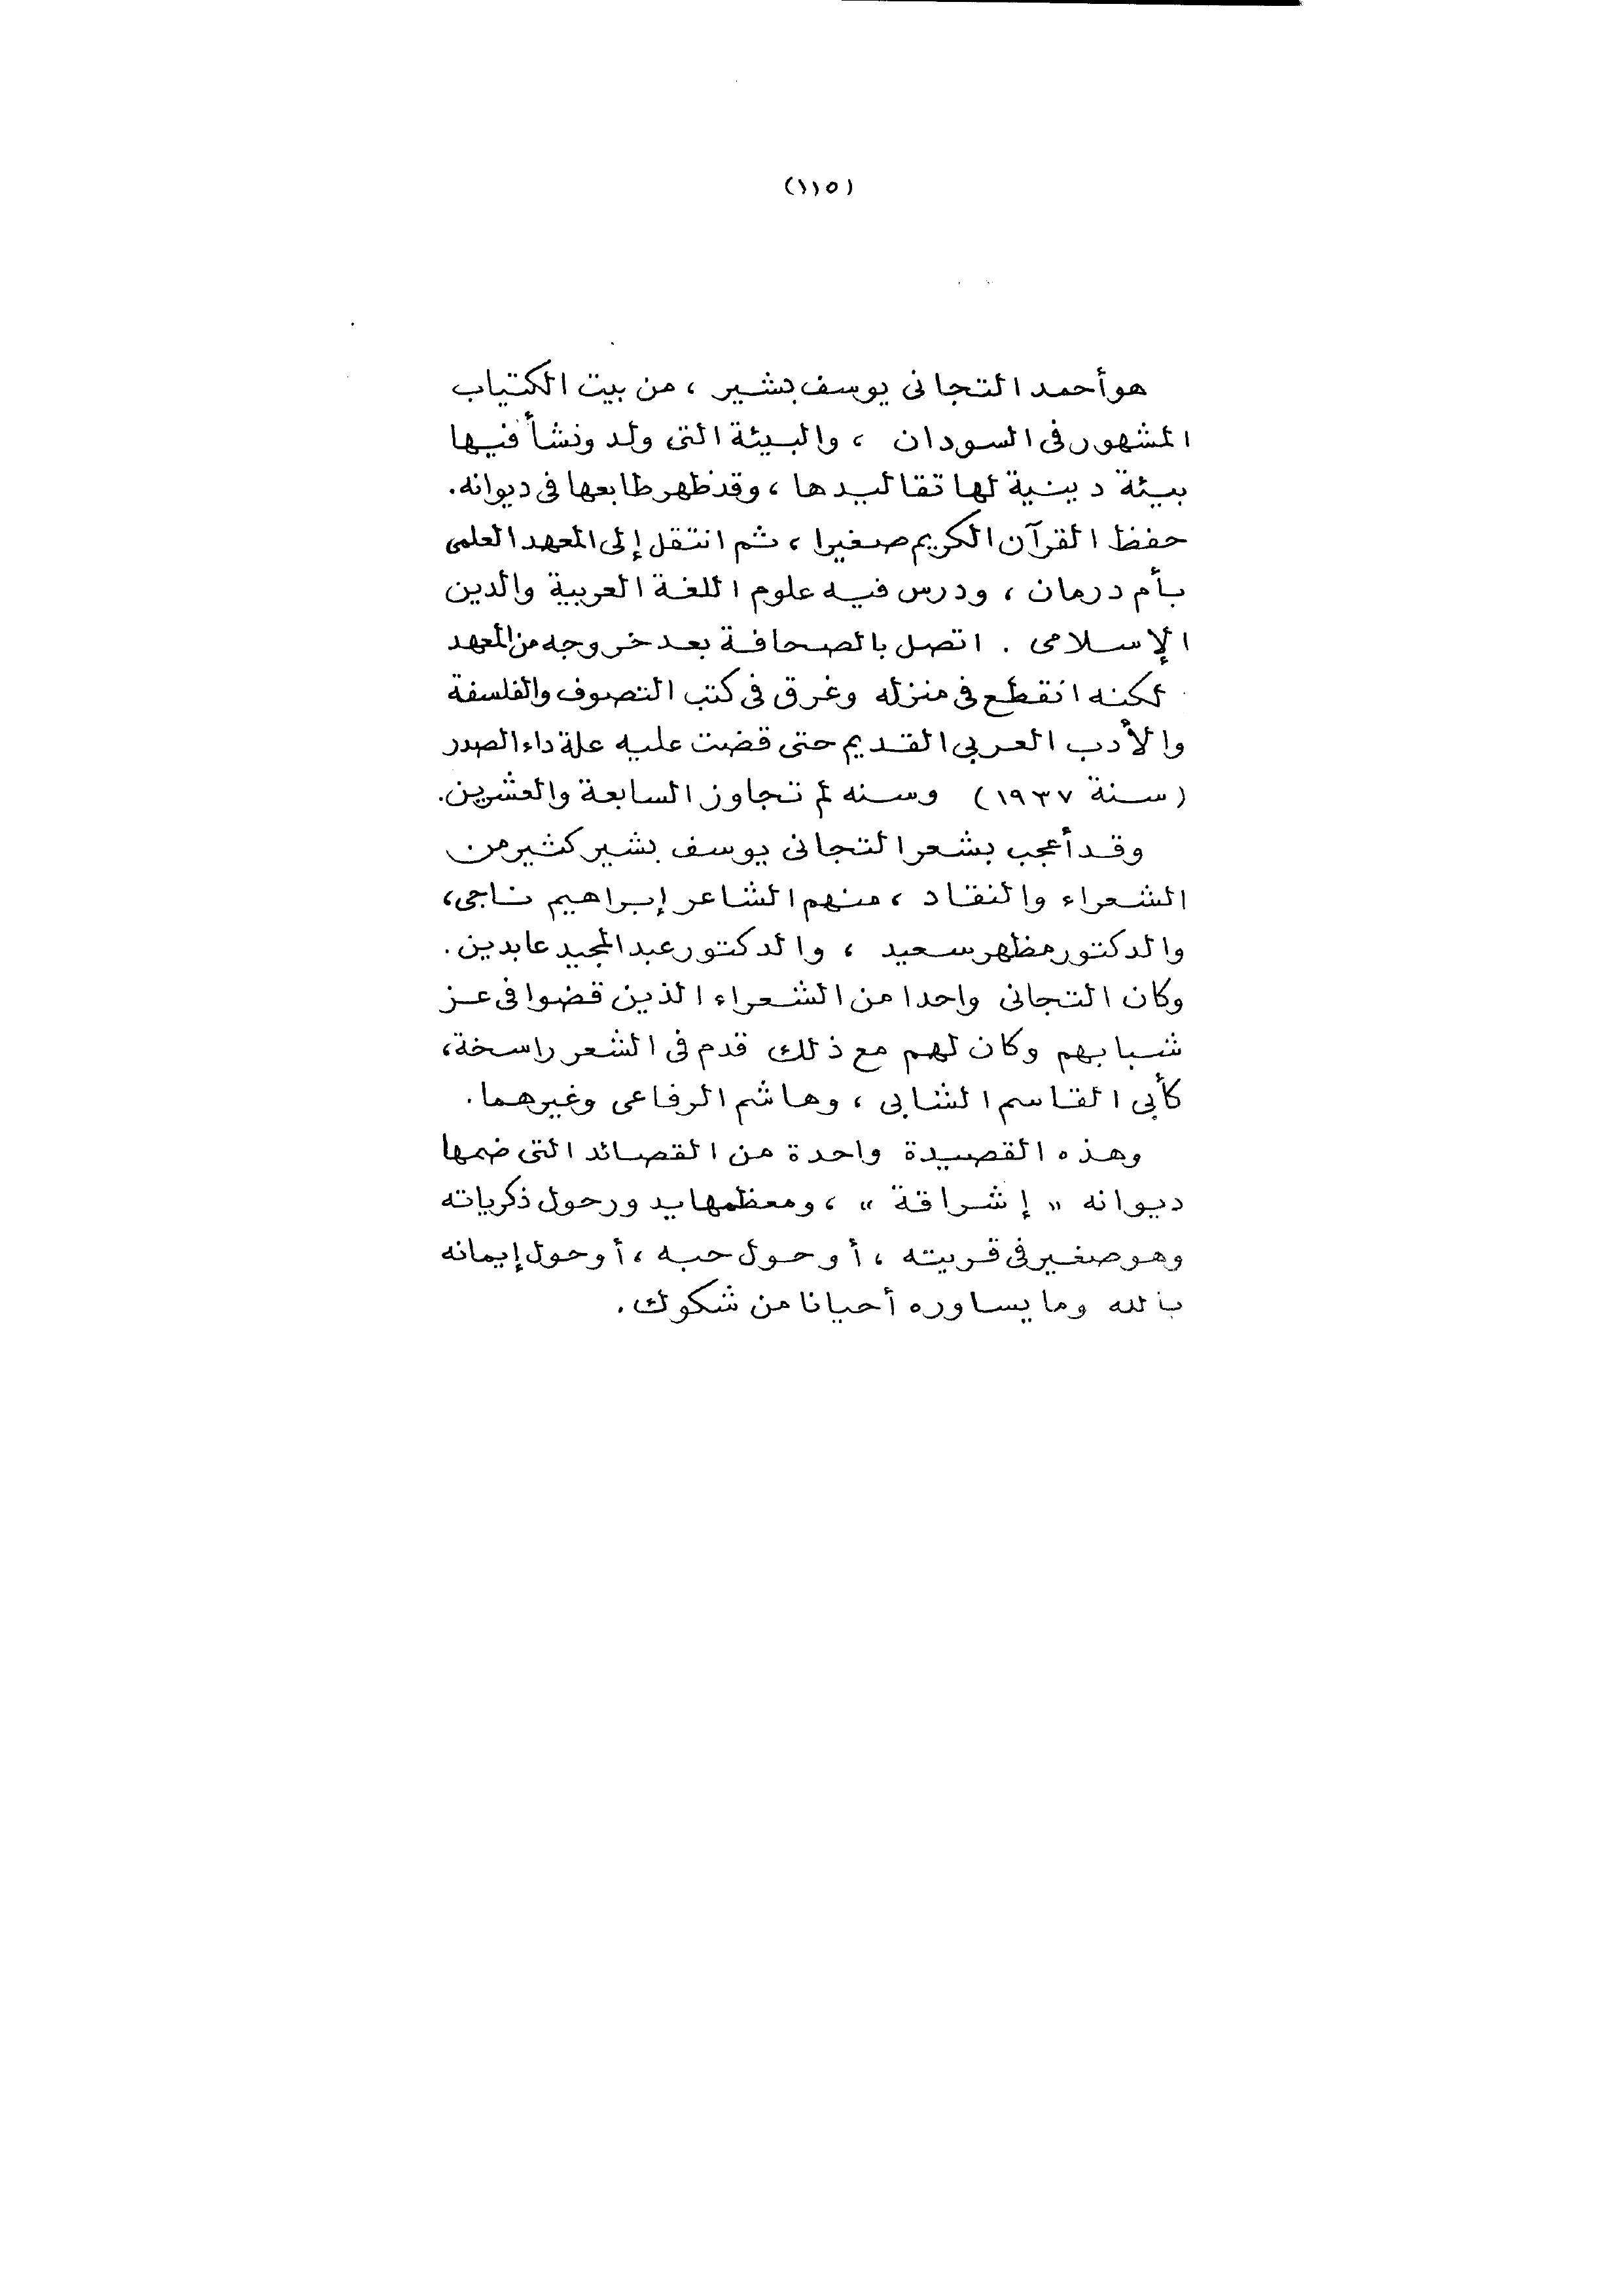 (١١٥)
هو أحمد التجانى يوسف بشير ، من بيت الكتياب
المشهور فى السودان ، والبيئة التى ولد ونشأ فيها
بيئة دينية لها تقاليدها ، وقد ظهر طابعها فى ديوانه.
حفظ القرآن الكريم صغيرا ، ثم انتقل إلى المعهد العلمى
بأم درمان ، ودرس فيه علوم اللغة العربية والدين
الإسلامى . اتصل بالصحافة بعد خروجه من المعهد
لكنه انقطع فى منزله وغرق فى كتب التصوف والفلسفة
والأدب العربى القديم حتى قضت عليه علة داء الصدر
(سنة ١٩٣٧) وسنه لم تجاوز السابعة والعشرين.
وقد أعجب بشعر التجانى يوسف بشير كثير من
الشعراء والنقاد ، منهم الشاعر إبراهيم ناجى،
والدكتور مظهر سعيد ، والدكتور عبد المجيد عابدين .
وكان التجانى واحدا من الشعراء الذين قضوا فى عز
شبابهم وكان لهم مع ذلك قدم فى الشعر راسخة،
كأبى القاسم الشابى ، وهاشم الرفاعى وغيرهما .
وهذه القصيدة واحدة من القصائد التى ضمها
ديوانه « إشراقة » ، ومعظمها يدور حول ذكرياته
وهو صغير فى قريته ، أو حول حبه ، أو حول إيمانه
بالله وما يساوره أحيانا من شكوك .